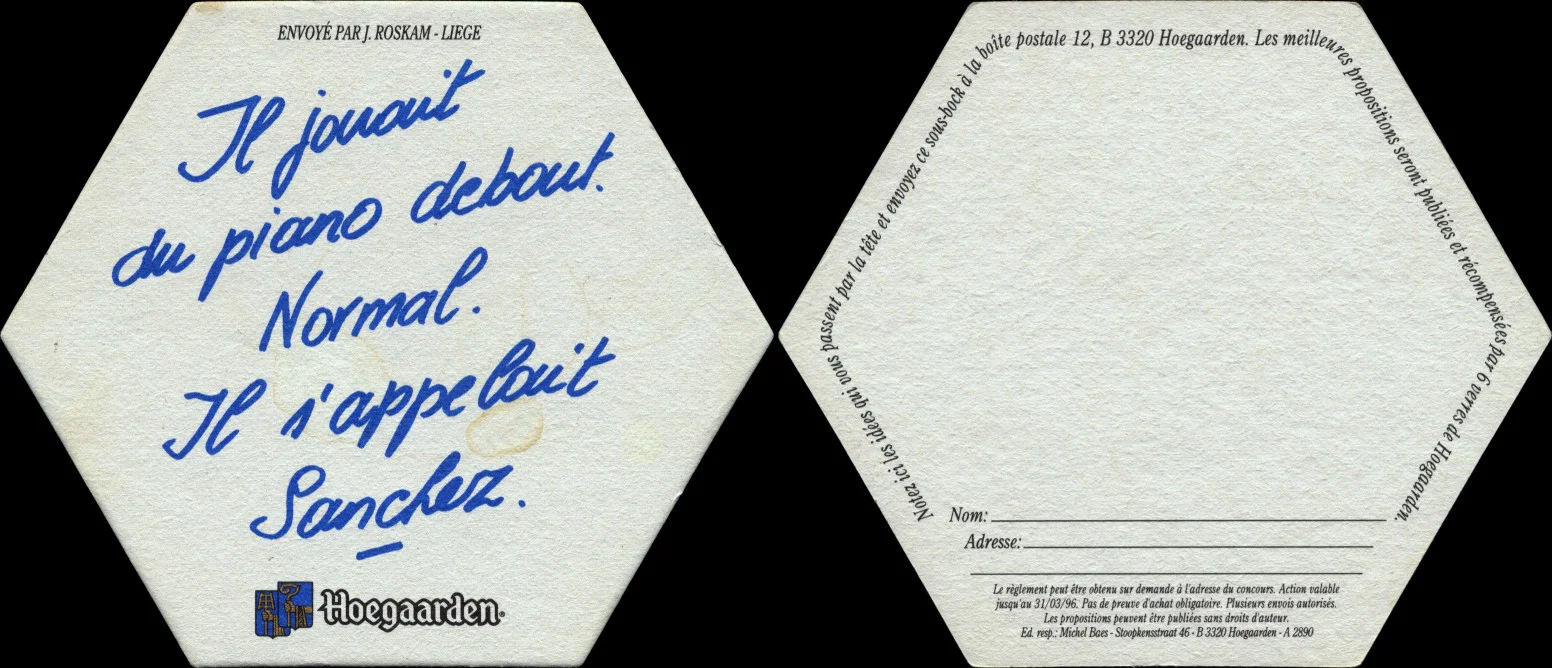 ENVOYÉ PAR J. ROSKAM - LIEGE
Il jouait
du piano debout.
Normal.
Il s'appelait
Sanchez.
Hoegaarden
Notez ici les idées qui vous passent par la tête et envoyez ce sous-bock à la boîte postale 12, B 3320 Hoegaarden. Les meilleures propositions seront publiées et récompensées par 6 verres de Hoegaarden.
Nom:
Adresse:
Le règlement peut être obtenu sur demande à l'adresse du concours. Action valable
jusqu'au 31/03/96. Pas de preuve d'achat obligatoire. Plusieurs envois autorisés.
Les propositions peuvent être publiées sans droits d'auteur.
Ed. resp.: Michel Baes - Stoopkensstraat 46 - B 3320 Hoegaarden - A 2890